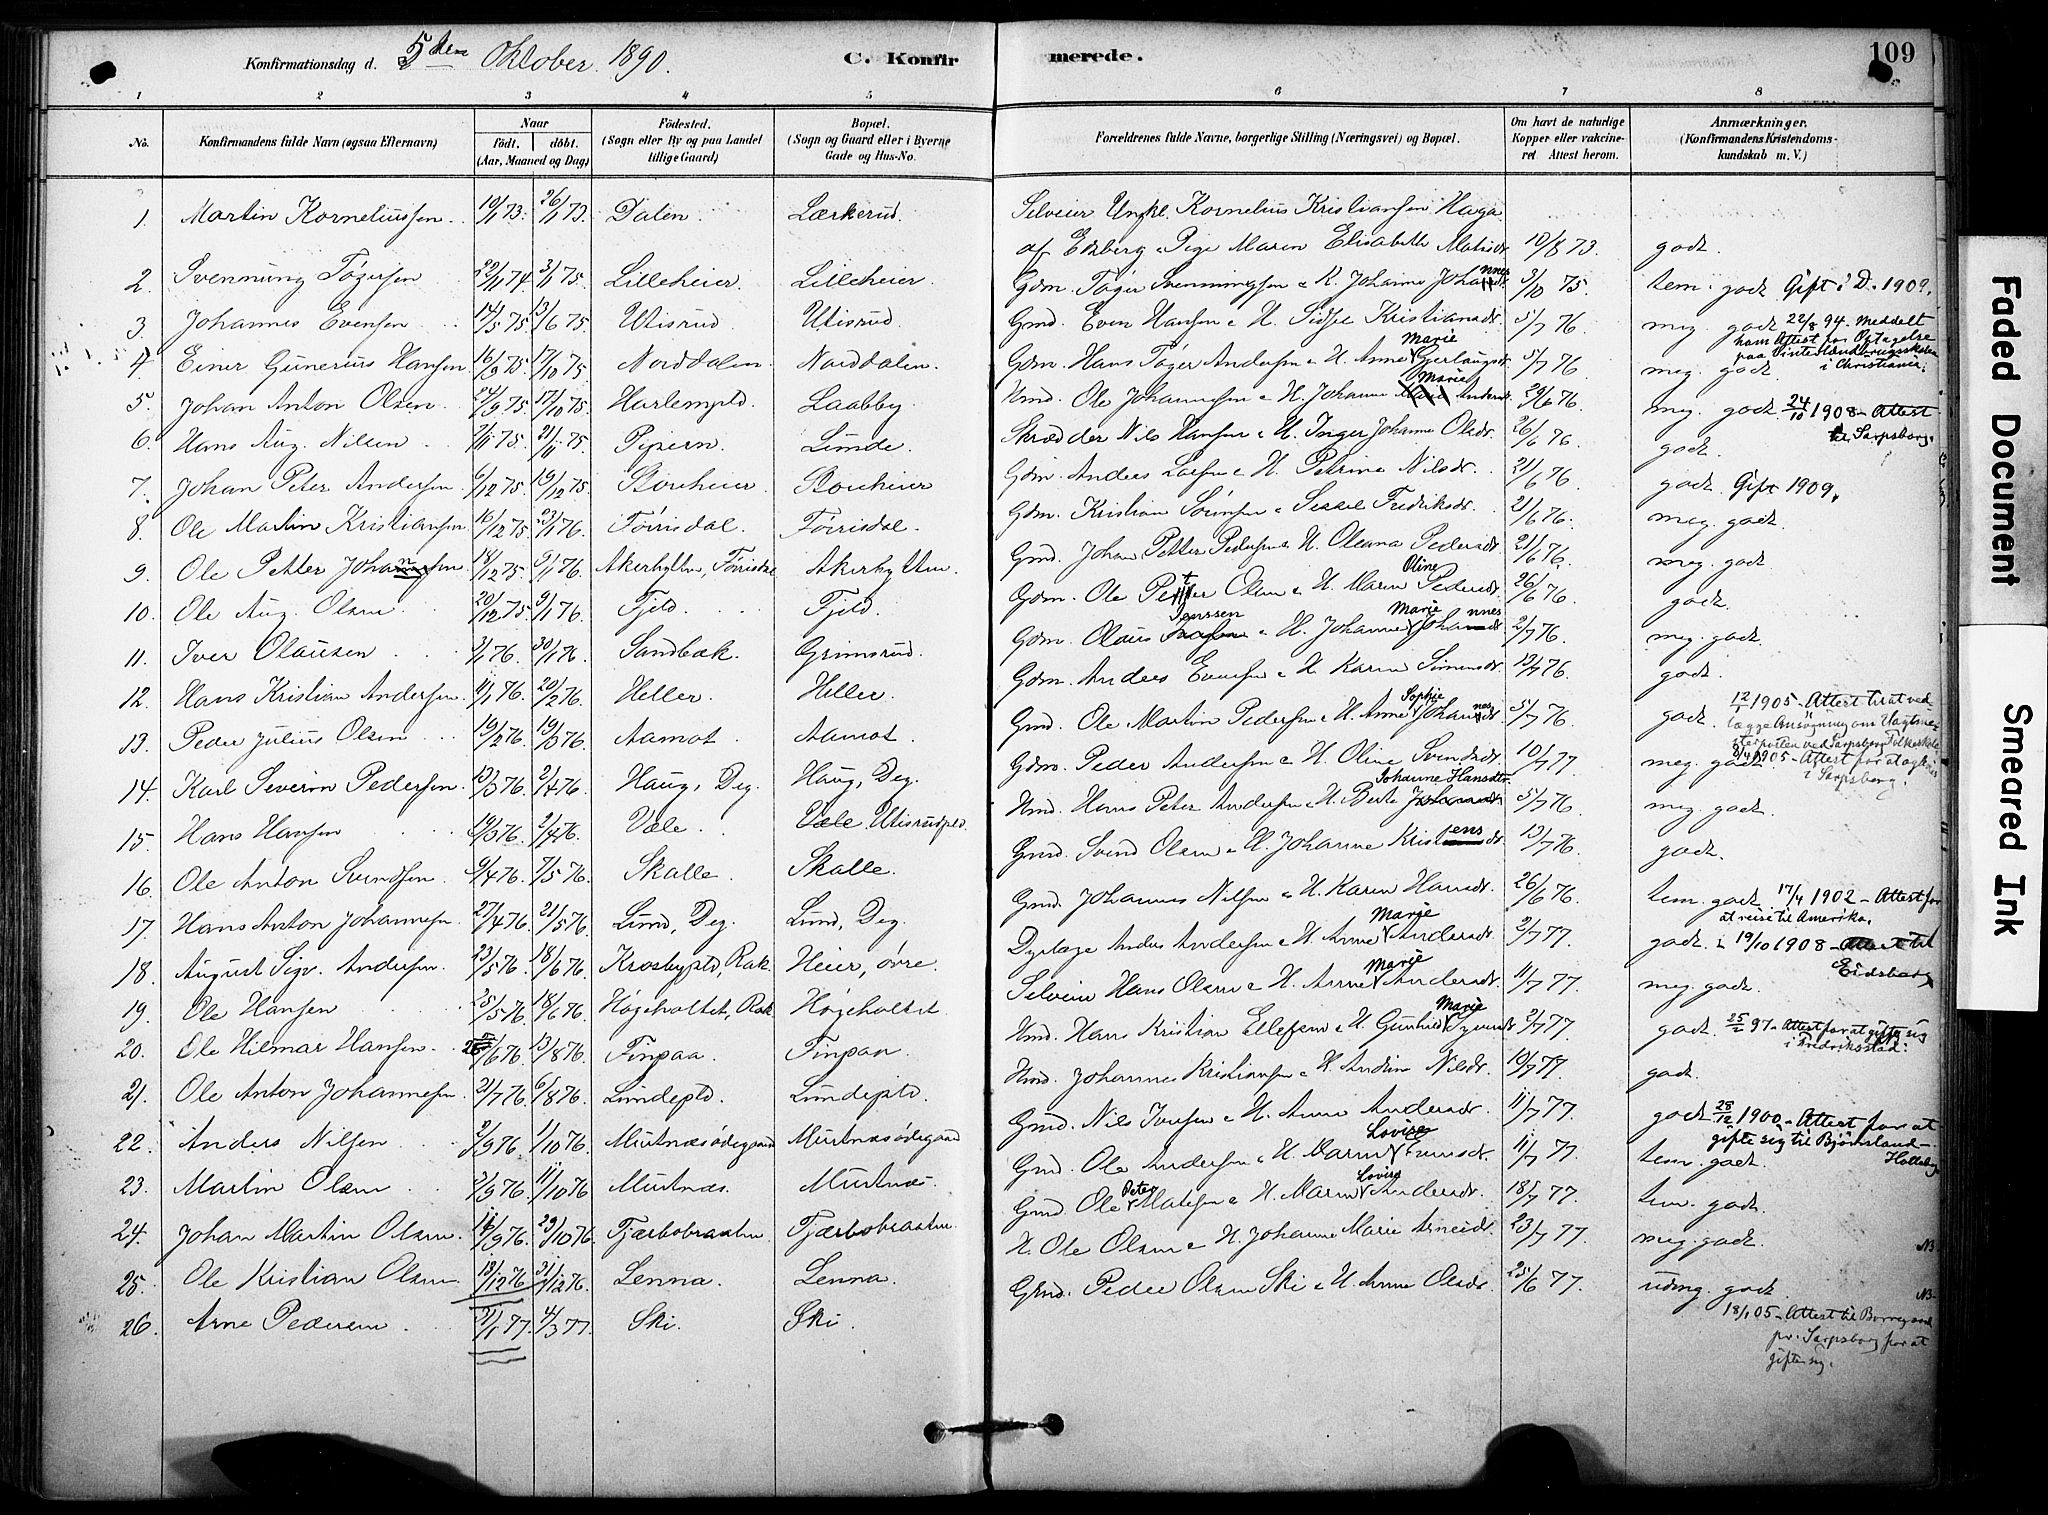 Konfirmationsdag d. 5den Oktober 1890. C. Konfirmerede. 109
1 2 3 4 5 6 7 8
No. Konfirmandens fulde Navn (ogsaa Efternavn) Naar født. døbt. (Aar, Maaned og Dag) Fødested. (Sogn eller By og paa Landet tillige Gaard) Bopæl. (Sogn og Gaard eller i Byerne Gade og Hus-No. Forældrenes fulde Navne, borgerlige Stilling (Næringsvei) og Bopæl. Om havt de naturlige Kopper eller vakcineret Attest herom. Anmærkninger. (Konfirmandens Kristendomskundskab m. V.)
1. Martin Korneliussen. 19/1 73. 26/1 73. Dalen. Lærkerud. Selveier Unkl. Kornelius Kristiansen Haga
af Edsberg Pige Maren Elisabeth 10/8 73. godt.
2. Svennung Tøgersen 22/11 74 3/1 75. Lilleheier. Lilleheier. Gdm. Tøger Svenningsen & K. Johanne Johannesdt. 3/10 75. tem. godt Gift i D. 1909.
3. Johannes Evensen 14/5 75. 13/6 75. Utisrud Utisrud. Gmd. Even Hansen & H. Sidsel Kristiansdt. 5/7 76. meg. godt 22/8 94. Meddelt ham Attest for Optagelse paa i Christiania.
4. Einer Gunerius Hansen 16/9 75. 17/10 75. Norddalen Norddalen. Gdm. Hans Tøger Andersen & H. Anne Marie 5/7 76. meg. godt.
5. Johan Anton Olsen. 24/9 75. 17/10 75. Harlempld. Laabby. Hmd. Ole Johannesen & H. Johanne Marie Andersdt. 29/6 76. meg. godt 24/10 1908 - Attest til Sarpsborg.
6. Hans Aug. Nilsen 2/11 75. 21/11 75. Pipern. Lunde. Skrædder Nils Hansen & H. Inger Johanne Olsdt. 26/6 76. godt.
7. Johan Peter Andersen 6/12 75. 19/12 75. Storeheier. Storeheier Gdm. Anders Larsen & H. Petrine Nilsdt. 21/6 76. godt. Gift 1909.
8. Ole Martin Kristiansen. 16/12 75. 23/1 76. Tørrisdal. Tørrisdal. Gdm. Kristian Sørensen & Sessel Fredriksdt. 21/6 76. meg. godt.
9. Ole Petter Johansen 18/12 75. 9/1 76. Akerhytten, Akerhytten. Gmd. Johan Petter Pedersen & H. Oleana Pedersdt. 21/6 76. meg. godt
10. Ole Aug. Olsen 20/12 75. 9/1 76. Fjeld. Fjeld. Gdm. Ole Petter Olsen & H. Maren Oline Pedersdt. 26/6 76. godt.
11. Iver Olausen 3/1 76. 30/1 76. Sandbæk. Grimsrud. Gdm. Olaus Iverssen & H. Johanne Marie Johannesdt. 2/7 76. meg. godt.
12. Hans Kristian Andersen. 11/1 76. 20/2 76. Heller. Heller. Gdm. Anders Evensen & H. Karen Simensdt. 13/7 76. godt.
13. Peder Julius Olsen 19/2 76. 19/3 76. Aamot. Aamot. Gmd. Ole Martin Pedersen & H. Anne Sophie Johannesdt. 5/7 76. godt. 12/1 1905 - Attest til at vedlægge Ansøgning om ved Sarpsborg Folkeskole
14. Karl Severin Pedersen. 19/3 76. 2/4 76. Haug, Deg. Haug, Deg. Gdm. Peder Andersen & H. Oline Svendsdt. 10/7 77. meg. godt. 1905 - Attest for i Sarpsborg.
15. Hans Hansen 19/3 76. 2/4 76. Væle. Væle, Utisrudpld. Hmd. Hans Peter Andersen & H. Berte Johanne Hansdtr. 5/7 76. meg. godt.
16. Ole Anton Svendsen. 6/4 76. 7/5 76. Skalle. Skalle. Gmd. Svend Olsen & H. Johanne Kristensdt. 13/7 76. godt.
17. Hans Anton Johannesen 27/4 76. 21/5 76. Lund, Deg. Lund, Deg. Gmd. Johannes Nilsen & H. Karen Hansdt. 26/6 76. tem. godt 17/4 1902 - Attest for at reise til Amerika.
18. August Sigv. Andersen. 23/5 76. 18/6 76. Krosbypld, Rak. Heier, øvre. Dyrlæge Anders Andersen & H. Anne Marie Andersdt. 2/7 77. godt. 19/10 1908 - Attest til Eidsberg
19. Ole Hansen 25/5 76. 18/6 76. Høgeholtet, Rak. Høgeholtet Selveier Hans Olsen & H. Anne Marie Andersdt. 11/7 77. meg. godt.
20. Ole Hilmar Hansen. 25/6 76. 13/8 76. Finpaa. Finpaa. Hmd. Hans Kristian Ellefsen & H. Gunhild Marie 2/7 77. godt. 25/2 97 - Attest for at gifte sig i Fredriksstad.
21. Ole Anton Johannesen 21/7 76. 6/8 76. Lundepld. Lundepld. Hmd. Johannes Kristiansen & H. Andrine Nilsdt. 10/7 77. godt.
22. Anders Nilsen 2/9 76. 1/10 76. Murtnæsødegaard Murtnæsødegaard Gmd. Nils Iversen & H. Anne Andersdt. 11/7 77. godt 28/12 1900 - Attest for at gifte sig til Bjørnsland-
23. Martin Olsen 2/9 76. 11/10 76 Murtnæs. Murtnæs. Gmd. Ole Andersen & H. Maren Lovise Evensdt. 11/7 77. tem. godt.
24. Johan Martin Olsen. 14/9 76. 29/10 76. Tjærbobraaten. Tjærbobraaten. Gmd. Ole Peter Matisen & H. Maren Lovise Andersdt. 18/7 77. tem. godt.
25. Ole Kristian Olsen. 18/12 76 31/12 76. Lenna. Lenna. H. Ole Olsen & H. Johanne Marie Arnesdt. 23/7 77. meg. godt. NB
26. Arne Pedersen 21/1 77. 4/3 77. Ski. Ski Gmd. Peder Olsen Ski & H. Anne Olsdt. 25/6 77. udm. godt. NB
18/1 05 - Attest til Borregaard pr. Sarpsborg for at gifte sig.
Faded Document
Smeared Ink